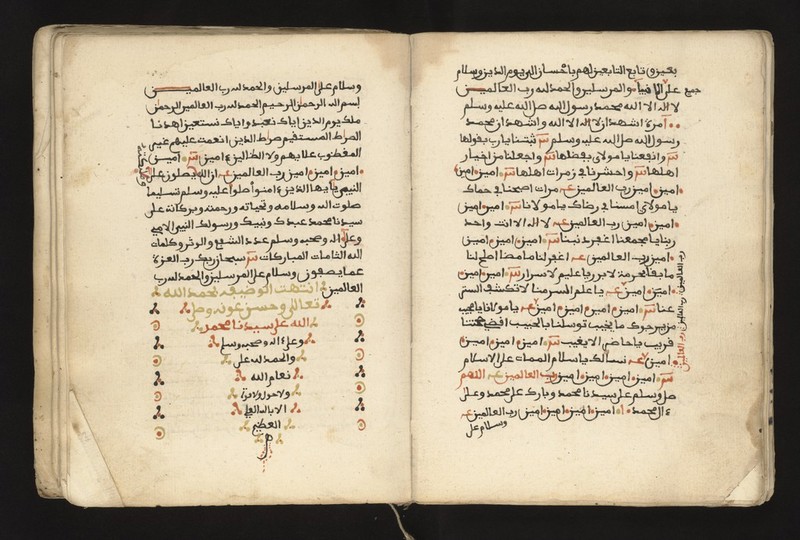 بعين وتابع التابعين لهم بإحسان إلى يوم الدين وسلام
على جميع الأنبياء والمرسلين والحمد لله رب العالمين
لا اله الا الله محمد رسول الله صلى الله عليه وسلم
مرة اشهد ان لا اله الا الله واشهد ان محمد
رسول الله صلى الله عليه وسلم ثبتنا يا رب بقولها
وانفعنا يا مولاي بفضلها واجعلنا من اخيار
اهلها واحشرنا في زمرات اهلها امين امين
امين امين رب العالمين مرات اصبحنا في حماك
يا مولاي امسنا في رضاك يا مولانا امين امين
امين امين رب العالمين لا اله الا انت واحد
ربنا يا مجمعنا اغفر ذنبنا امين امين امين
امين رب العالمين اغفر لنا ما مضا اصلح لنا
ما بقا بحرمة لابرار يا عليم لاسرار امين امين
امين امين يا علم السر منا لا تكشف الستر
عنا امين امين امين امين يا مولانا يا مجيب
من يرجوك ما يخيب توسلنا بالحبيب
قريب يا حاضر لا يغيب امين امين امين
امين نسالك يا سلام الممات على الاسلام
امين امين امين امين رب العالمين اللهم
صل وسلم على سيدنا محمد وبارك على محمد وعلى
ءال محمد امين امين امين امين رب العالمين
وسلام على
رب العالمين رب العالمين رب العالمين
وسلام على المرسلين والحمد لله رب العالمين
بسم الله الرحمن الرحيم الحمد لله رب العالمين الرحمن
ملك يوم الدين اياك نعبد واياك نستعين اهدنا
الصراط المستقيم صراط الذين انعمت عليهم غير
المغضوب عليهم ولا الضالين امين امين
امين امين امين رب العالمين ان الله يصلون على
النبي يا ايها الذين ءامنوا صلوا عليه وسلم تسليما
صلوت الله وسلامه وتحياته ورحمته وبركاته على
سيدنا محمد عبدك ونبيك ورسولك النبي الامي
وعلى اله وصحبه وسلم عدد الشفع والوثر وكلمات
الله التامات المباركات سبحان ربك رب العزة
عما يصفون وسلام على المرسلين والحمد لله رب
العالمين انتهت الوظيفه بحمد الله
تعالى وحسن عونه وصل
الله على سيدنا محمد
وعلى ءاله وصحبه وسلم
والحمد لله على
نعام الله
ولا حول ولا قوة
الا بالله العلي
العظيم